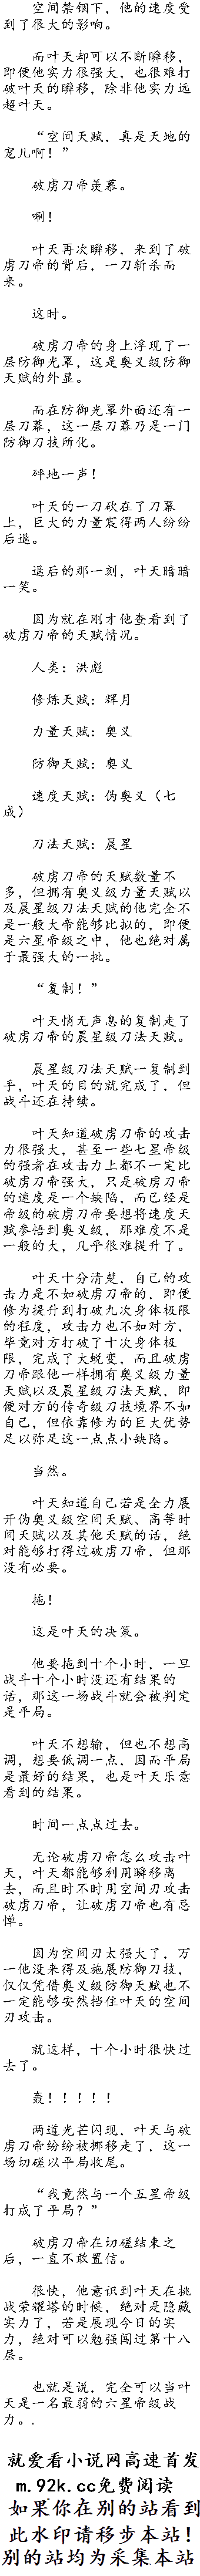 空间禁锢下，他的速度受
到了很大的影响。
而叶天却可以不断瞬移，
即便他实力很强大，也很难打
破叶天的瞬移，除非他实力远
超叶天。
“空间天赋，真是天地的
宠儿啊！”
破虏刀帝羡慕。
唰！
叶天再次瞬移，来到了破
虏刀帝的背后，一刀斩杀而
来。
这时。
破虏刀帝的身上浮现了一
层防御光罩，这是奥义级防御
天赋的外显。
而在防御光罩外面还有一
层刀幕，这一层刀幕乃是一门
防御刀技所化。
砰地一声！
叶天的一刀砍在了刀幕
上，巨大的力量震得两人纷纷
后退。
退后的那一刻，叶天暗暗
一笑。
因为就在刚才他查看到了
破虏刀帝的天赋情况。
人类：洪彪
修炼天赋：辉月
力量天赋：奥义
防御天赋：奥义
速度天赋：伪奥义（七
成）
刀法天赋：晨星
破虏刀帝的天赋数量不
多，但拥有奥义级力量天赋以
及晨星级刀法天赋的他完全不
是一般大帝能够比拟的，即便
是六星帝级之中，他也绝对属
于最强大的一批。
“复制！”
叶天悄无声息的复制走了
破虏刀帝的晨星级刀法天赋。
晨星级刀法天赋一复制到
手，叶天的目的就完成了，但
战斗还在持续。
叶天知道破虏刀帝的攻击
力很强大，甚至一些七星帝级
的强者在攻击力上都不一定比
破虏刀帝强大，只是破虏刀帝
的速度是一个缺陷，而已经是
帝级的破虏刀帝要想将速度天
赋参悟到奥义级，那难度不是
一般的大，几乎很难提升了。
叶天十分清楚，自己的攻
击力是不如破虏刀帝的，即便
修为提升到打破九次身体极限
的程度，攻击力也不如对方，
毕竟对方打破了十次身体极
限，完成了大蜕变，而且破虏
刀帝跟他一样拥有奥义级力量
天赋以及晨星级刀法天赋，即
便对方的传奇级刀技境界不如
自己，但依靠修为的巨大优势
足以弥足这一点点小缺陷。
当然。
叶天知道自己若是全力展
开伪奥义级空间天赋、高等时
间天赋以及其他天赋的话，绝
对能够打得过破虏刀帝，但那
没有必要。
拖！
这是叶天的决策。
他要拖到十个小时，一旦
战斗十个小时没还有结果的
话，那这一场战斗就会被判定
是平局。
叶天不想输，但也不想高
调，想要低调一点，因而平局
是最好的结果，也是叶天乐意
看到的结果。
时间一点点过去。
无论破虏刀帝怎么攻击叶
天，叶天都能够利用瞬移离
去，而且时不时用空间刃攻击
破虏刀帝，让破虏刀帝也有忌
惮。
因为空间刃太强大了，万
一他没来得及施展防御刀技，
仅仅凭借奥义级防御天赋也不
一定能够安然挡住叶天的空间
刃攻击。
就这样，十个小时很快过
去了。
轰！！！！！
两道光芒闪现，叶天与破
虏刀帝纷纷被挪移走了，这一
场切磋以平局收尾。
“我竟然与一个五星帝级
打成了平局？”
破虏刀帝在切磋结束之
后，一直不敢置信。
很快，他意识到叶天在挑
战荣耀塔的时候，绝对是隐藏
实力了，若是展现今日的实
力，绝对可以勉强闯过第十八
层。
也就是说，完全可以当叶
天是一名最弱的六星帝级战
力。.
就爱看小说网高速首发
m.92k.cc免费阅读
如果你在别的站看到
此水印请移步本站！
别的站均为采集本站